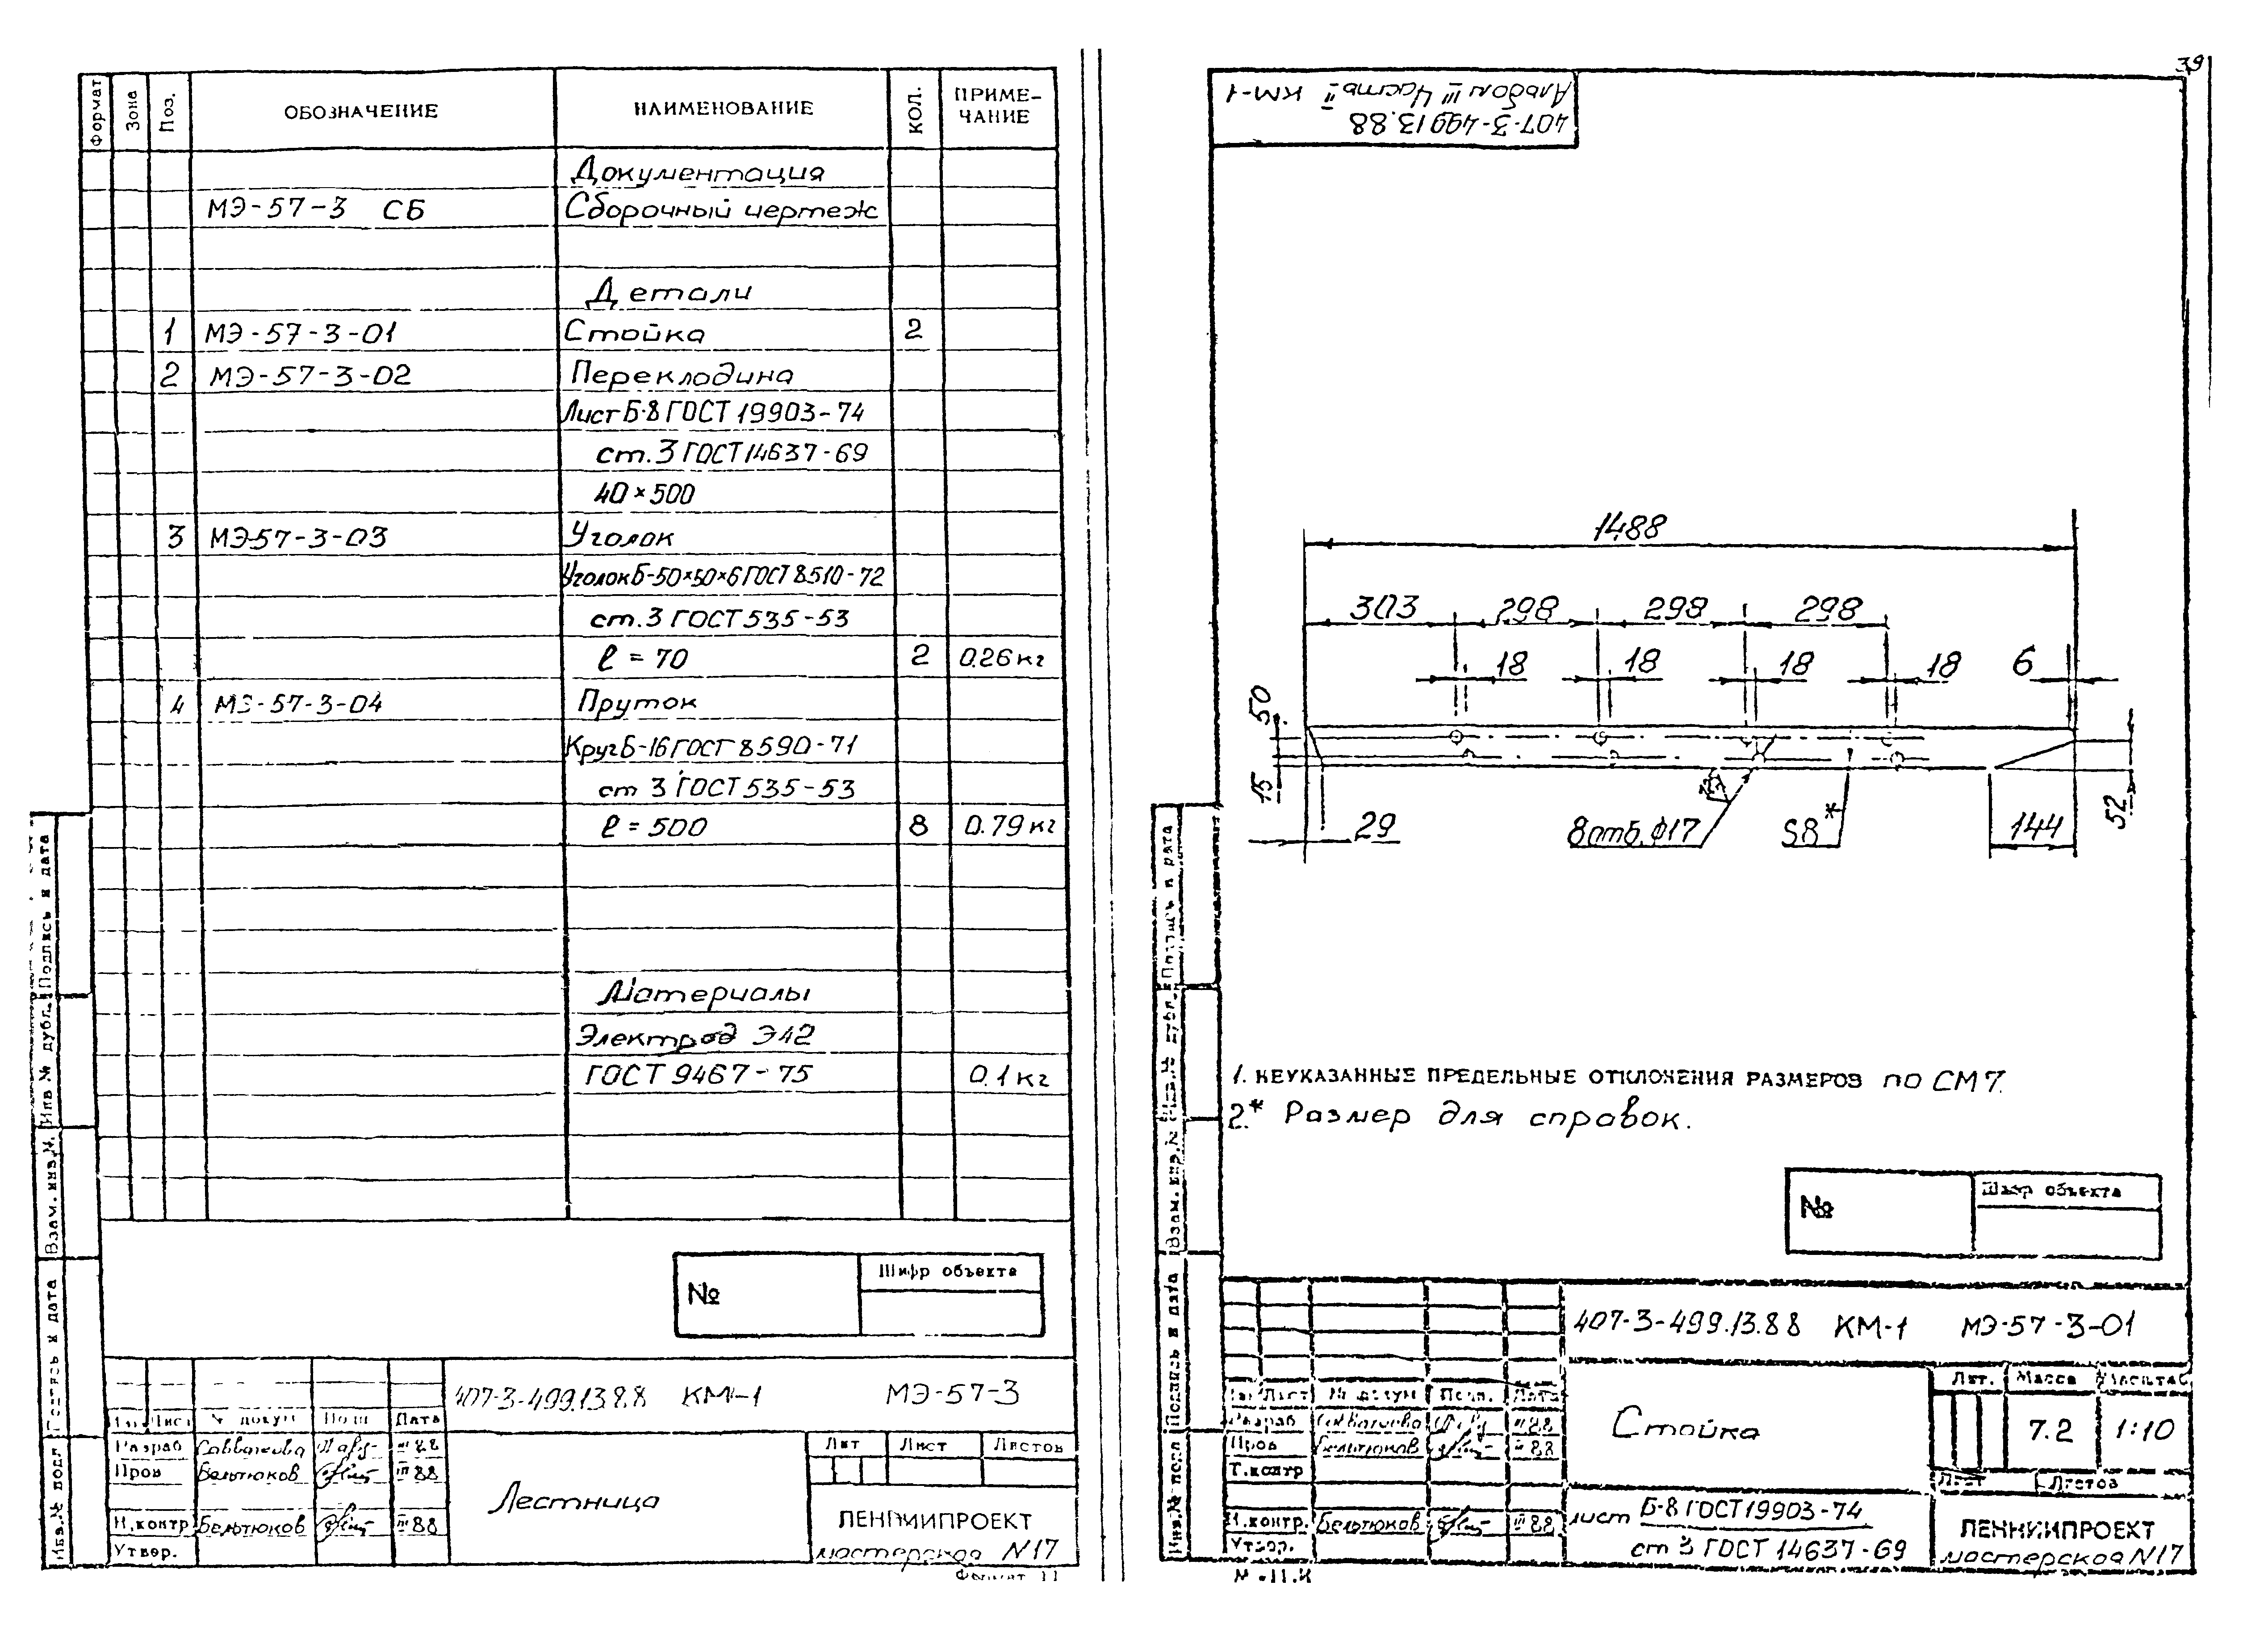 Формат Зона Поз. ОБОЗНАЧЕНИЕ НАИМЕНОВАНИЕ КОЛ. ПРИМЕ-
ЧАНИЕ
Документация
МЭ-57-3 СБ Сборочный чертеж
Детали
1 МЭ-57-3-01 Стойка 2
2 МЭ-57-3-02 Перекладина
Лист Б-8 ГОСТ 19903-74
ст. 3 ГОСТ 14637-69
40×500
3 МЭ57-3-03 Уголок
Уголок Б-50×50×6 ГОСТ 8510-72
ст. 3 ГОСТ 535-53
ℓ = 70 2 0.26 кг
4 МЭ-57-3-04 Пруток
Круг Б-16 ГОСТ 8590-71
ст 3 ГОСТ 535-53
ℓ = 500 8 0.79 кг
Материалы
Электрод Э42
ГОСТ 9467-75 0.1 кг
№ Шифр объекта
407-3-499.13.88 КМ-1 МЭ-57-3
Изм. Лист № докум Подп Дата
Разраб Савватеева III 88
Пров Бельтюков III 88
Н.контр Бельтюков III 88
Утвер.
Лестница
Лит Лист Листов
ЛЕННИИПРОЕКТ
мастерская N17
Формат 11
Инв.№ подл Подпись и дата Взам. инв.№ Инв № дубл. Подпись и дата
39
407-3-499 13.88
Альбом III Часть II КМ-1
1488
303 298 298 298
18 18 18 18 6
50
15
29
8 отв. ф17
S8*
144
52
1. НЕУКАЗАННЫЕ ПРЕДЕЛЬНЫЕ ОТКЛОНЕНИЯ РАЗМЕРОВ по СМ7.
2.* Размер для справок.
№ Шифр объекта
407-3-499.13.88 КМ-1 МЭ-57-3-01
Изм Лист № докум Подп. Дата
Разраб Савватеева III 88
Пров Бельтюков III 88
Т.контр
Н.контр. Бельтюков III 88
Утвер.
Стойка
Лит. Масса Масштаб
7.2 1:10
Лист Листов
лист Б-8 ГОСТ 19903-74
ст 3 ГОСТ 14637-69
ЛЕННИИПРОЕКТ
мастерская N17
Инв.№ подл Подпись и дата Взам. инв.№ Инв.№ дубл. Подпись и дата